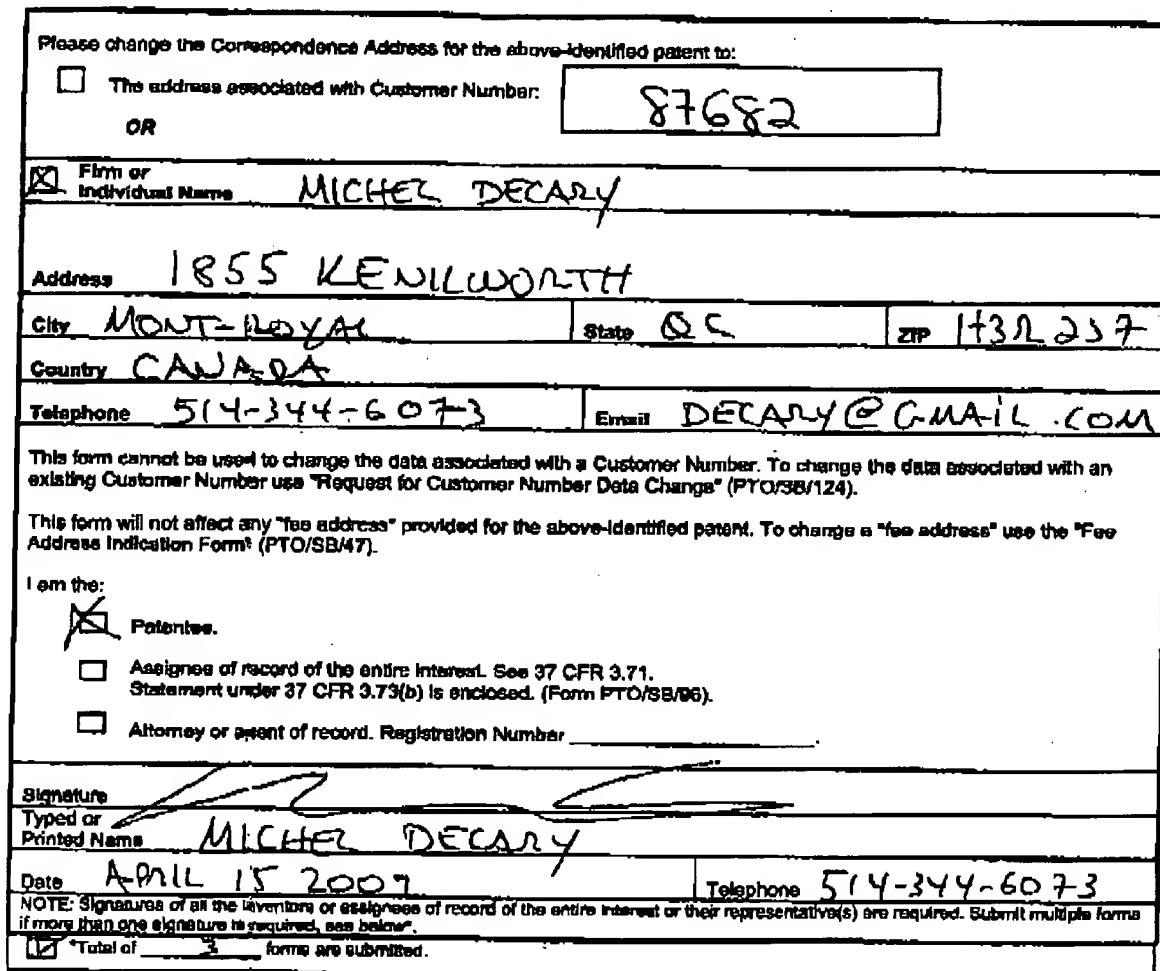 Please change the Correspondence Address for the above-identified patent to:
The address associated with Customer Number: 87682
OR
Firm or
Individual Name MICHEL DECARY
Address 1855 KENILWORTH
City MONT-ROYAL State QC ZIP H3R 2S7
Country CANADA
Telephone 514-344-6073 Email DECARY@GMAIL.COM
This form cannot be used to change the data associated with a Customer Number. To change the data associated with an
existing Customer Number use "Request for Customer Number Data Change" (PTO/SB/124).
This form will not affect any "fee address" provided for the above-identified patent. To change a "fee address" use the "Fee
Address Indication Form" (PTO/SB/47).
I am the:
Patentee.
Assignee of record of the entire interest. See 37 CFR 3.71.
Statement under 37 CFR 3.73(b) is enclosed. (Form PTO/SB/96).
Attorney or agent of record. Registration Number
Signature
Typed or
Printed Name MICHEL DECARY
Date APRIL 15 2009 Telephone 514-344-6073
NOTE: Signatures of all the inventors or assignees of record of the entire interest or their representative(s) are required. Submit multiple forms
if more than one signature is required, see below*.
*Total of 3 forms are submitted.